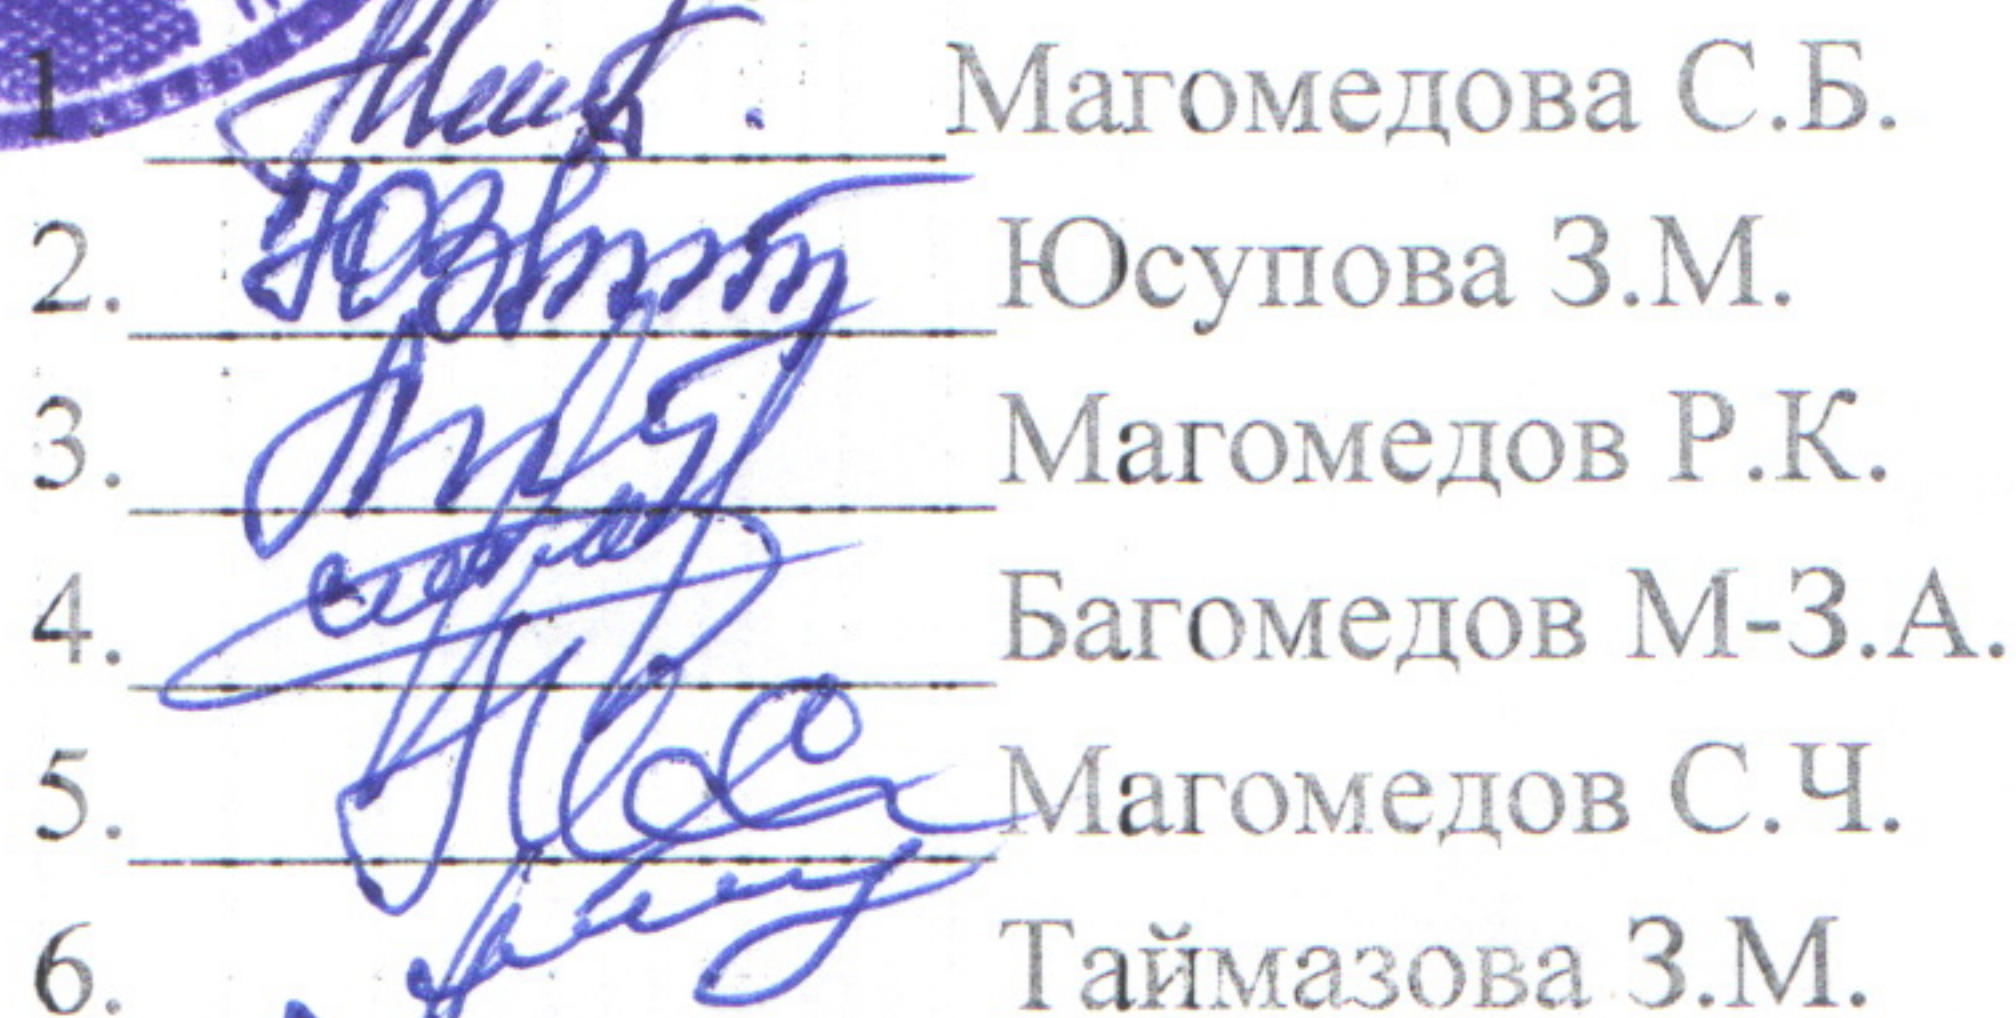 1. Магомедова С.Б.
2. Юсупова З.М.
3. Магомедов Р.К.
4. Багомедов М-З.А.
5. Магомедов С.Ч.
6. Таймазова З.М.